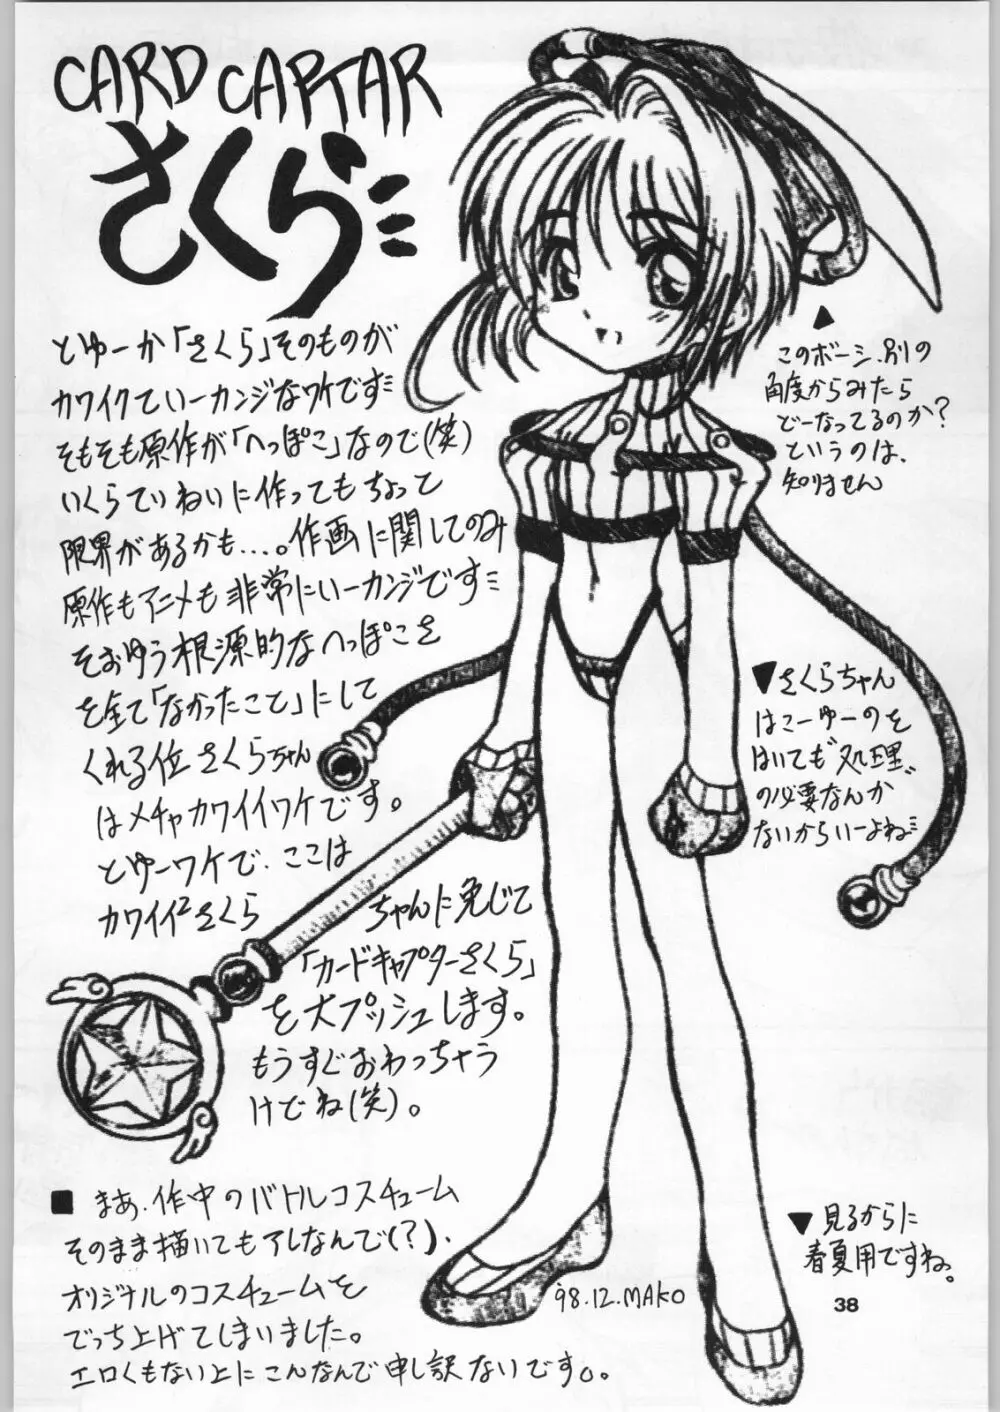 CARD CAPTAR
さくら
とゆーか「さくら」そのものが
カワイクていーカンジなワケです
そもそも原作が「へっぽこ」なので(笑)
いくらていねいに作ってもちょっと
限界があるかも…。作画に関してのみ
原作もアニメも非常にいーカンジです
そおゆう根源的なへっぽこさ
を全て「なかったこと」にして
くれる位さくらちゃん
はメチャカワイイワケです。
とゆーワケで、ここは
カワイイ2さくら
ちゃんに免じて
「カードキャプターさくら」
を大プッシュします。
もうすぐおわっちゃう
けどね(笑)。
■ まあ、作中のバトルコスチューム
そのまま描いてもアレなんで(?)、
オリジナルのコスチュームを
でっち上げてしまいました。
エロくもない上にこんなんで申し訳ないです。
▲
このボーシ、別の
角度からみたら
どーなってるのか?
というのは、
知りません
▼さくらちゃん
はこーゆーのを
はいても"処理"
の必要なんか
ないからいーよね
▼見るからに
春夏用ですね。
'98.12.MAKO
38